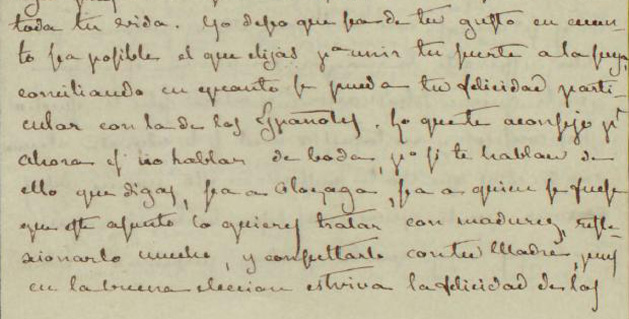 toda tu vida. Yo deseo que sea de tu gusto en cuan-
to sea posible el que elijas pª unir tu suerte a la suya,
conciliando en cuanto se pueda tu felicidad parti-
cular con la de los Españoles. Lo que te aconsejo pr
ahora es no hablar de boda, po si te hablan de
ello que digas, sea a Olozaga, sea a quien se fuese
que este asunto lo quieres tratar con madurez, refle-
xionarlo mucho, y consultarlo con tu Madre, pues
en la buena eleccion estriva la felicidad de los